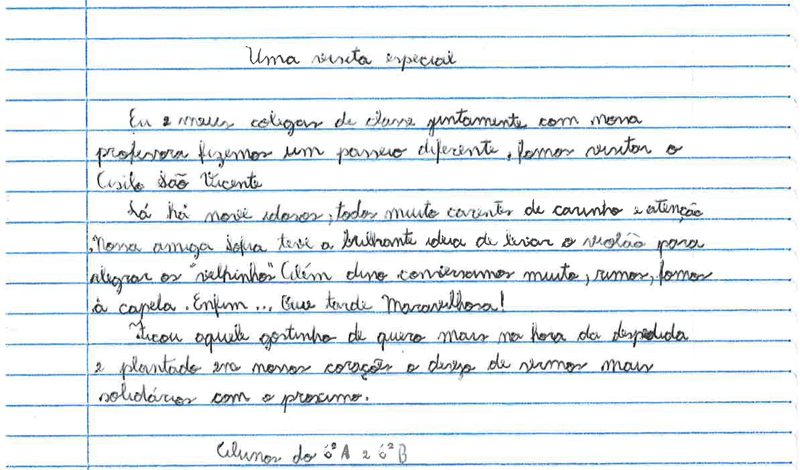 Uma visita especial
Eu e meus colegas de classe juntamente com nossa
professora fizemos um passeio diferente, fomos visitar o
Asilo São Vicente
Lá há nove idosos, todos muito carentes de carinho e atenção
. Nossa amiga Sofia teve a brilhante ideia de levar o violão para
alegrar os "velhinhos" Além disso conversamos muito, rimos, fomos
à capela. Enfim... Que tarde Maravilhosa!
Ficou aquele gostinho de quero mais na hora da despedida
e plantado em nossos corações o desejo de sermos mais
solidários com o proximo.
Alunos do 6º A e 6º B